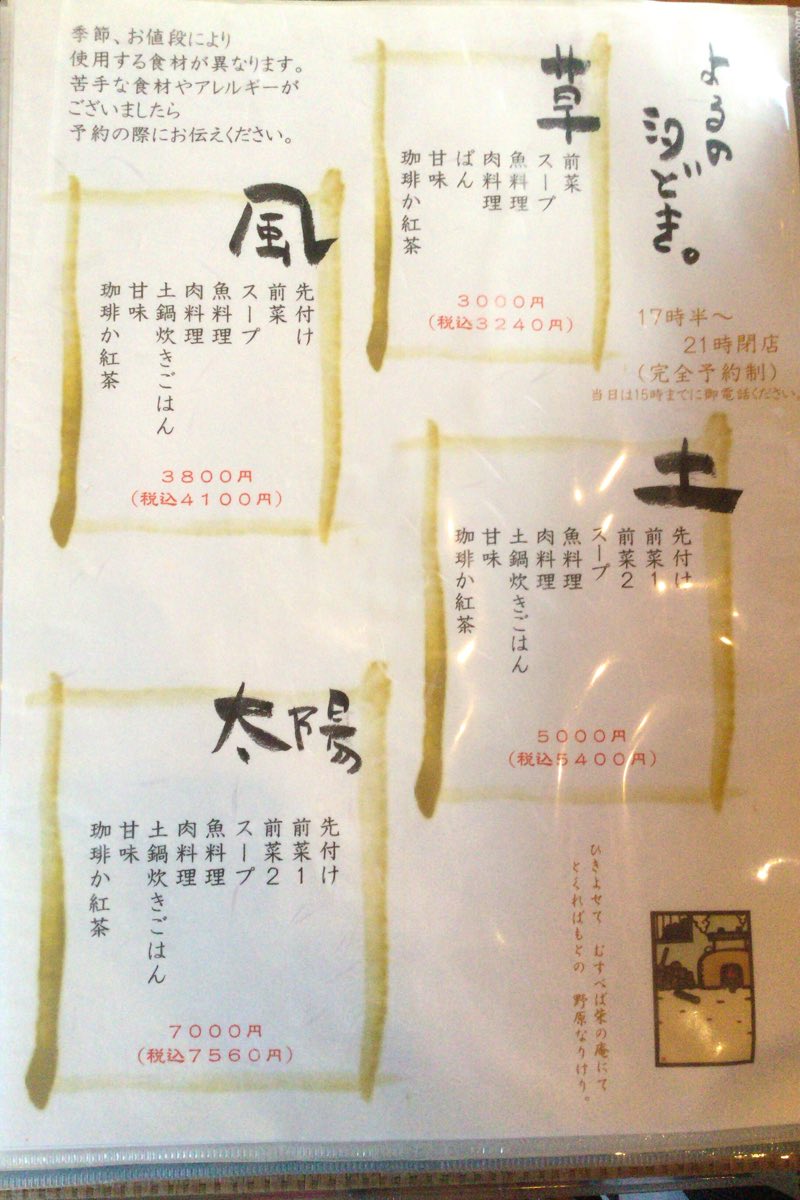 よるの
汐どき。
17時半〜
21時閉店
(完全予約制)
当日は15時までに御電話ください。
草
前菜
スープ
魚料理
肉料理
ぱん
甘味
珈琲か紅茶
3000円
(税込3240円)
季節、お値段により
使用する食材が異なります。
苦手な食材やアレルギーが
ございましたら
予約の際にお伝えください。
風
先付け
前菜
スープ
魚料理
肉料理
土鍋炊きごはん
甘味
珈琲か紅茶
3800円
(税込4100円)
土
先付け
前菜1
前菜2
スープ
魚料理
肉料理
土鍋炊きごはん
甘味
珈琲か紅茶
5000円
(税込5400円)
太陽
先付け
前菜1
前菜2
スープ
魚料理
肉料理
土鍋炊きごはん
甘味
珈琲か紅茶
7000円
(税込7560円)
ひきよせて むすべば柴の庵にて
とくればもとの 野原なりけり。